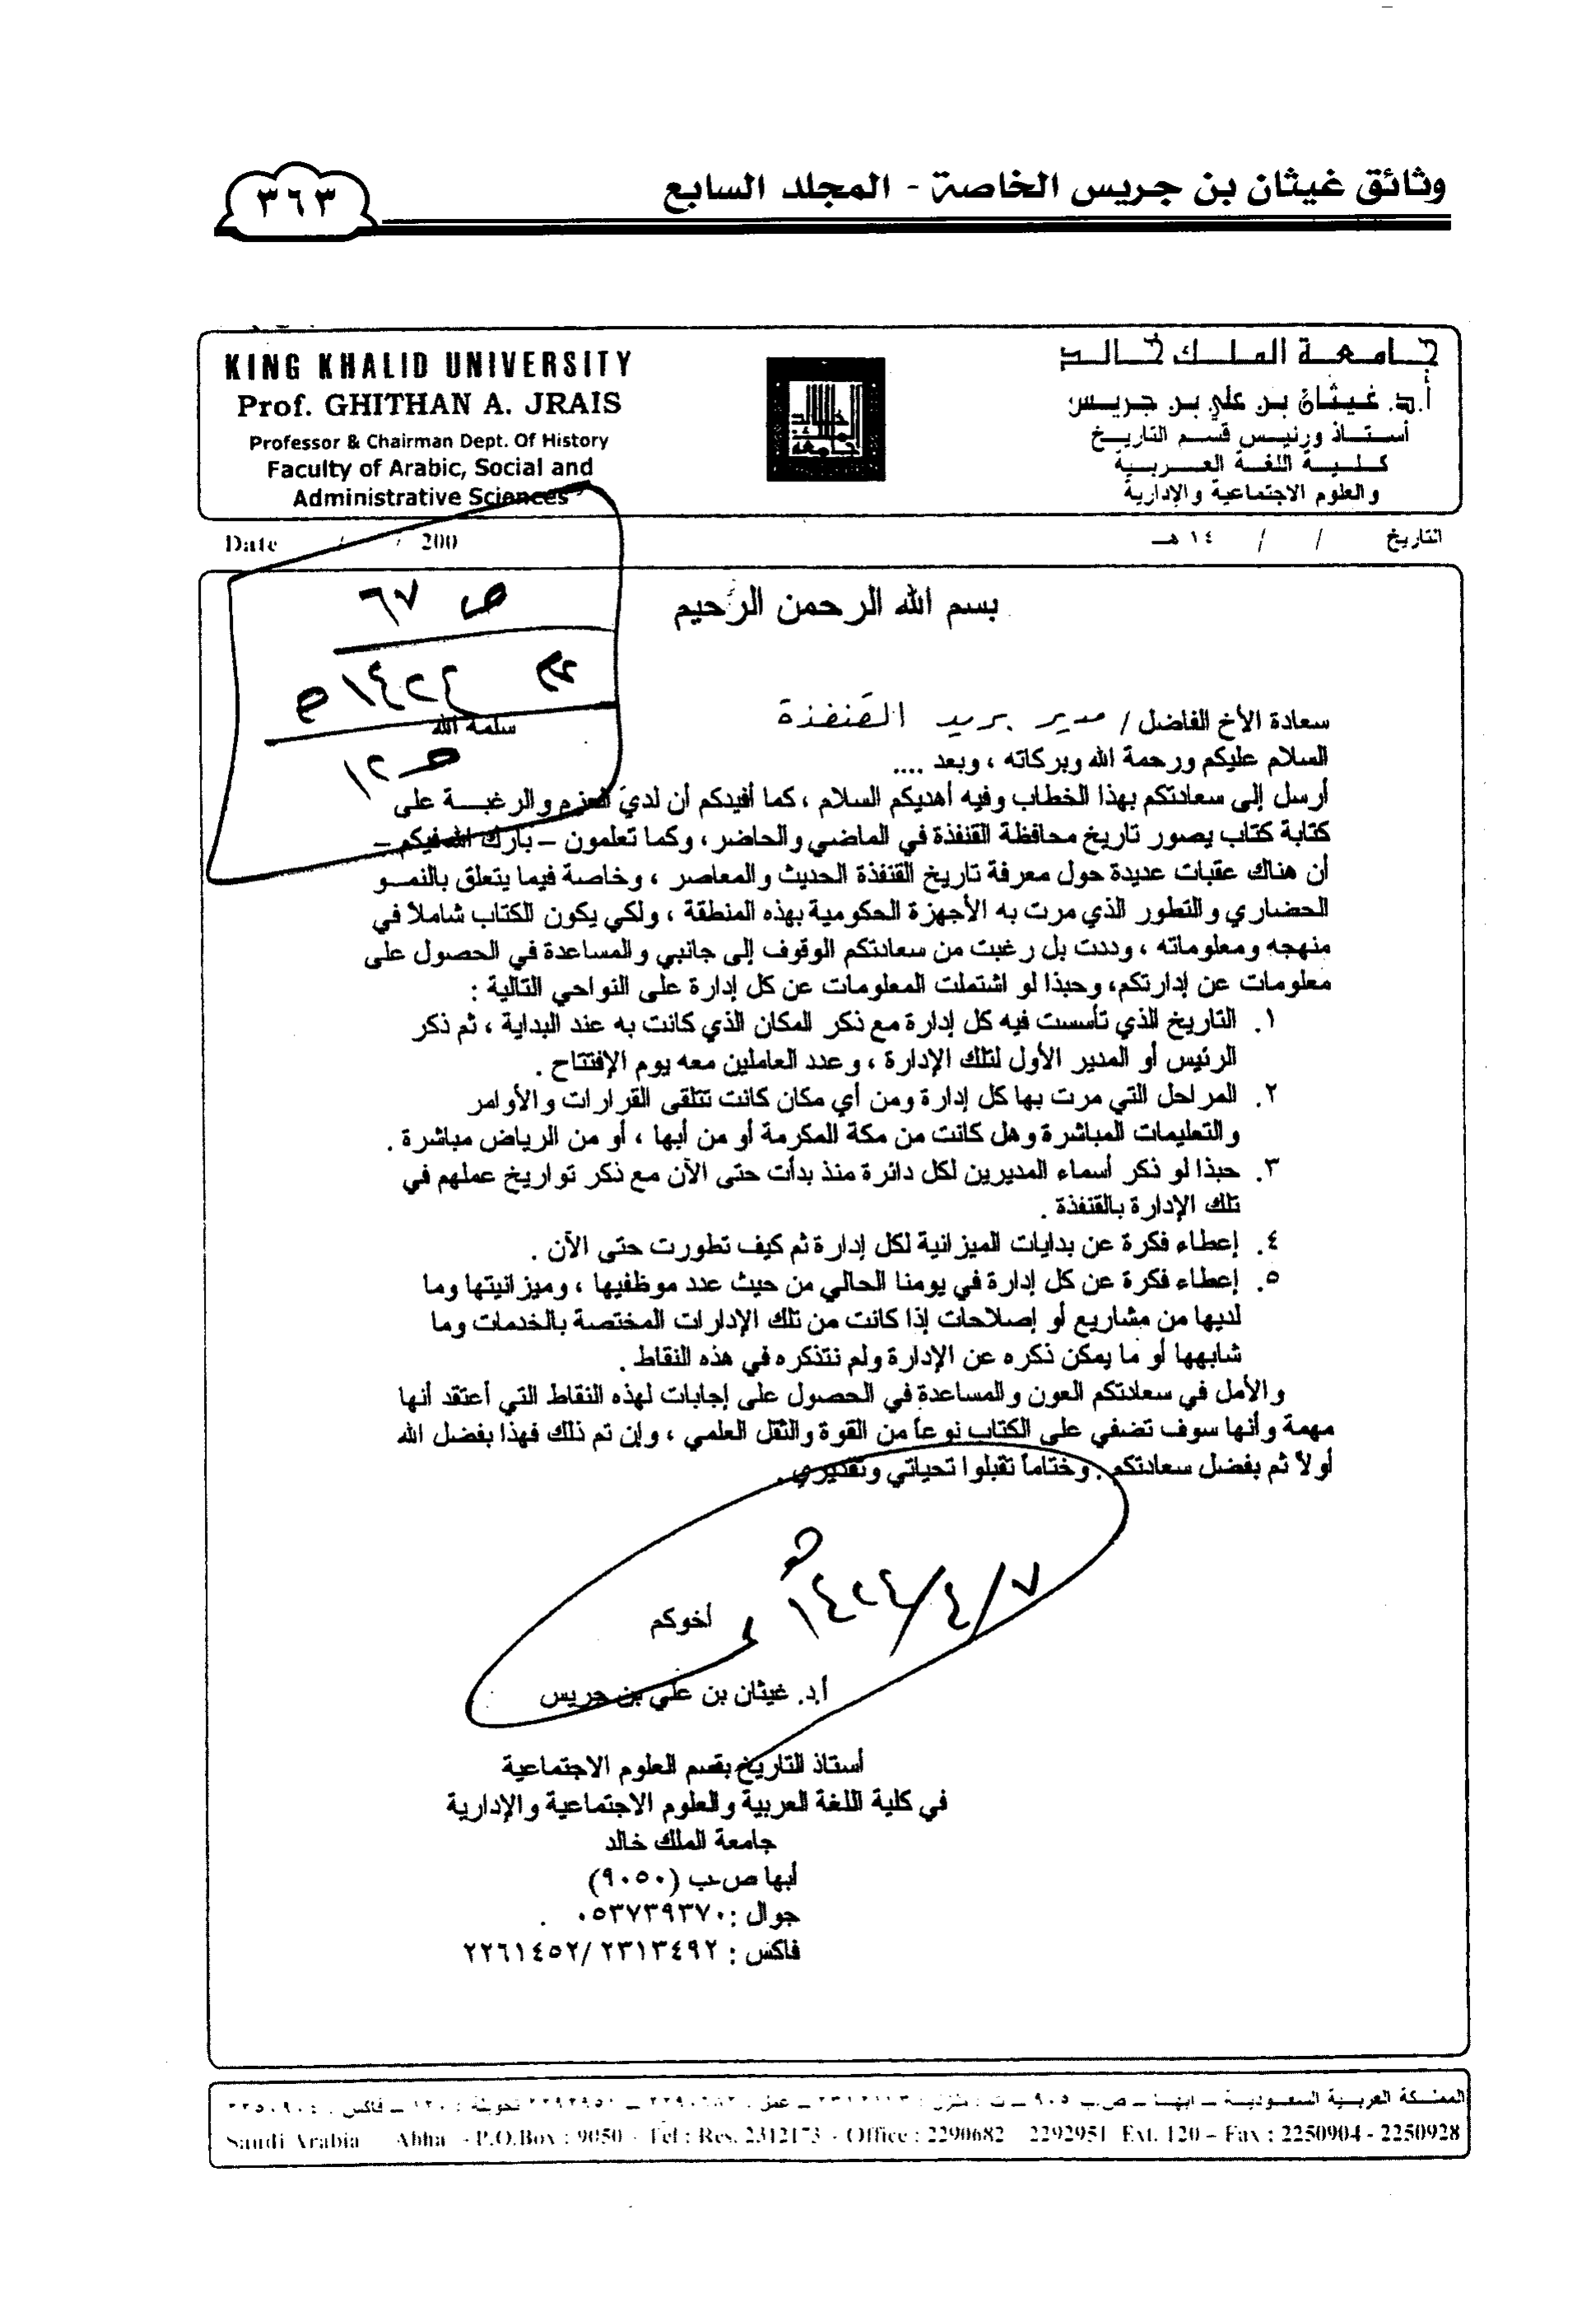 وثائق غيثان بن جريس الخاصة - المجلد السابع
٣٦٣
جامعة الملك خالد
أ.د. غيثان بن علي بن جريس
أستاذ ورئيس قسم التاريخ
كلية اللغة العربية
والعلوم الاجتماعية والإدارية
KING KHALID UNIVERSITY
Prof. GHITHAN A. JRAIS
Professor & Chairman Dept. Of History
Faculty of Arabic, Social and
Administrative Sciences
التاريخ / / ١٤ هـ
Date / / 200
ص ٦٧
١٤٢٤ هـ
بسم الله الرحمن الرحيم
سعادة الأخ الفاضل / مدير بريد القنفذة سلمه الله
السلام عليكم ورحمة الله وبركاته ، وبعد ....
أرسل إلى سعادتكم بهذا الخطاب وفيه أهديكم السلام ، كما أفيدكم أن لديّ العزم والرغبة على
كتابة كتاب يصور تاريخ محافظة القنفذة في الماضي والحاضر ، وكما تعلمون – بارك الله فيكم –
أن هناك عقبات عديدة حول معرفة تاريخ القنفذة الحديث والمعاصر ، وخاصة فيما يتعلق بالنمو
الحضاري والتطور الذي مرت به الأجهزة الحكومية بهذه المنطقة ، ولكي يكون الكتاب شاملاً في
منهجه ومعلوماته ، وددت بل رغبت من سعادتكم الوقوف إلى جانبي والمساعدة في الحصول على
معلومات عن إدارتكم، وحبذا لو اشتملت المعلومات عن كل إدارة على النواحي التالية :
١. التاريخ الذي تأسست فيه كل إدارة مع ذكر المكان الذي كانت به عند البداية ، ثم ذكر
الرئيس أو المدير الأول لتلك الإدارة ، وعدد العاملين معه يوم الإفتتاح .
٢. المراحل التي مرت بها كل إدارة ومن أي مكان كانت تتلقى القرارات والأوامر
والتعليمات المباشرة وهل كانت من مكة المكرمة أو من أبها ، أو من الرياض مباشرة .
٣. حبذا لو ذكر أسماء المديرين لكل دائرة منذ بدأت حتى الآن مع ذكر تواريخ عملهم في
تلك الإدارة بالقنفذة .
٤. إعطاء فكرة عن بدايات الميزانية لكل إدارة ثم كيف تطورت حتى الآن .
٥. إعطاء فكرة عن كل إدارة في يومنا الحالي من حيث عدد موظفيها ، وميزانيتها وما
لديها من مشاريع أو إصلاحات إذا كانت من تلك الإدارات المختصة بالخدمات وما
شابهها أو ما يمكن ذكره عن الإدارة ولم نتذكره في هذه النقاط .
والأمل في سعادتكم العون والمساعدة في الحصول على إجابات لهذه النقاط التي أعتقد أنها
مهمة وأنها سوف تضفي على الكتاب نوعاً من القوة والثقل العلمي ، وإن تم ذلك فهذا بفضل الله
أولاً ثم بفضل سعادتكم . وختاماً تقبلوا تحياتي وتقديري .
٧/٤/١٤٢٤
أخوكم
أ.د. غيثان بن علي بن جريس
أستاذ التاريخ بقسم العلوم الاجتماعية
في كلية اللغة العربية والعلوم الاجتماعية والإدارية
جامعة الملك خالد
أبها ص.ب (٩٠٥٠)
جوال : ٠٥٣٧٣٩٣٧٠ .
فاكس : ٢٣١٣٤٩٢/ ٢٢٦١٤٥٢
المملكة العربية السعودية – ابها – ص.ب
Saudi Arabia Abha - P.O.Box : 9050 - Tel : Res. 2312173 - Office : 2290682 2292951 Ext. 120 – Fax : 2250904 - 2250928